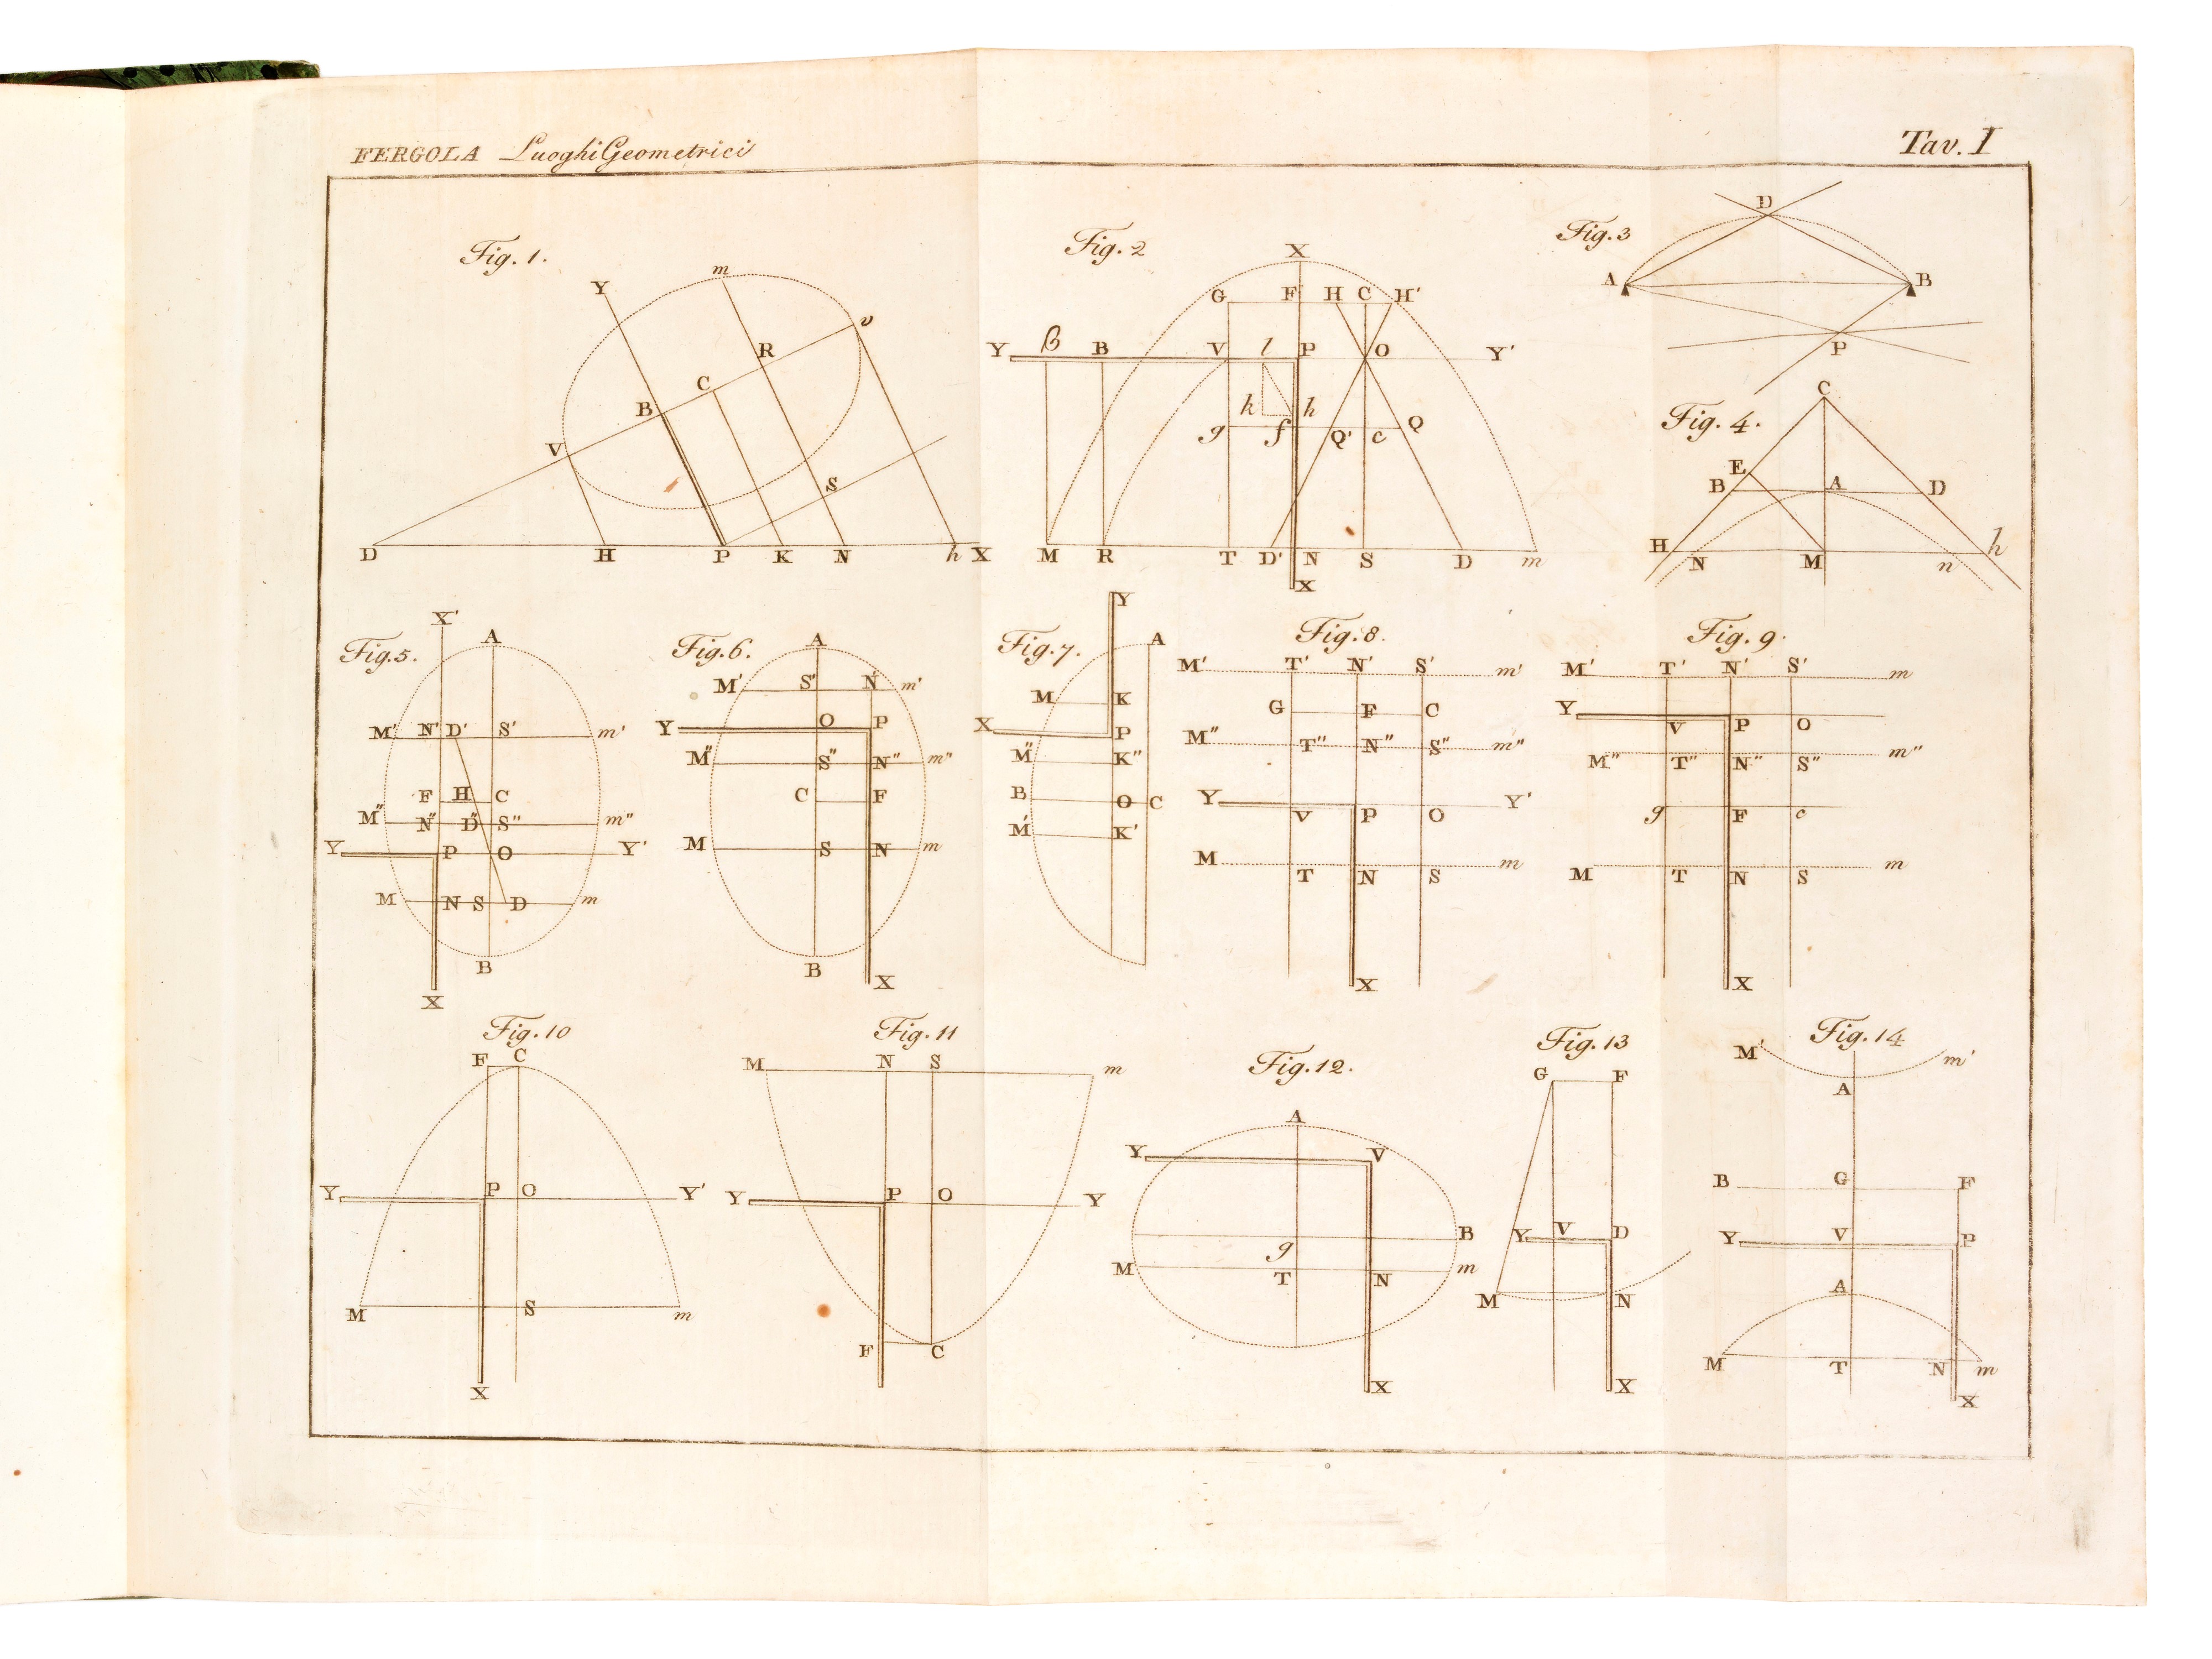 FERGOLA Luoghi Geometrici
Tav. I
Fig. 1.
Y m v R C B V S
D H P K N h X
Fig. 2
X
G F H C H'
Y β B V l P O Y'
k h
g f Q' c Q
M R T D' N S D m
X
Fig. 3
D
A B
P
Fig. 4.
C
E
B A D
H h
N M n
Fig. 5.
X' A
M' N' D' S' m'
F H C
M" N" D" S" m"
Y P O Y'
M N S D m
B
X
Fig. 6.
A
M' S' N' m'
Y O P
M" S" N" m"
C F
M S N m
B X
Fig. 7.
Y
A
M K
X P
M" K"
B O C
M' K'
Fig. 8.
M' T' N' S' m'
G F C
M" T" N" S" m"
Y V P O Y'
M T N S m
X
Fig. 9.
M' T' N' S' m
Y V P O
M" T" N" S" m"
g F c
M T N S m
X
Fig. 10
F C
Y P O Y'
M S m
X
Fig. 11
M N S m
Y P O Y
F C
Fig. 12.
A
Y V
B
g
M T N m
X
Fig. 13
G F
Y V D
M N
X
Fig. 14
M' m'
A
B G F
Y V P
A
M T N m
X